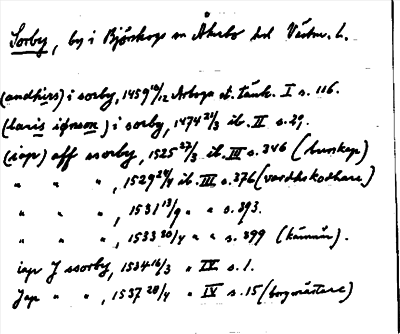 Sorby, by i Björskogs sn Åkerbo hd Västm. l.
(andhirs) i sorby, 1459 10/12 Arboga st. tänk. I s. 116.
(laris iønson) i sorby, 1474 21/3 ib. II s. 29.
(iap) aff ssorby, 1525 27/3 ib. III s. 346 (burskap)
" " ", 1529 24/4 ib. III s. 376 (
" " ", 1531 13/9 " " s. 393.
" " ", 1533 30/4 " " s. 399 (kämnär).
iap J ssorby, 1534 16/3 " IV s. 1.
Jap " ", 1537 28/4 " IV s. 15 (borgmästare)